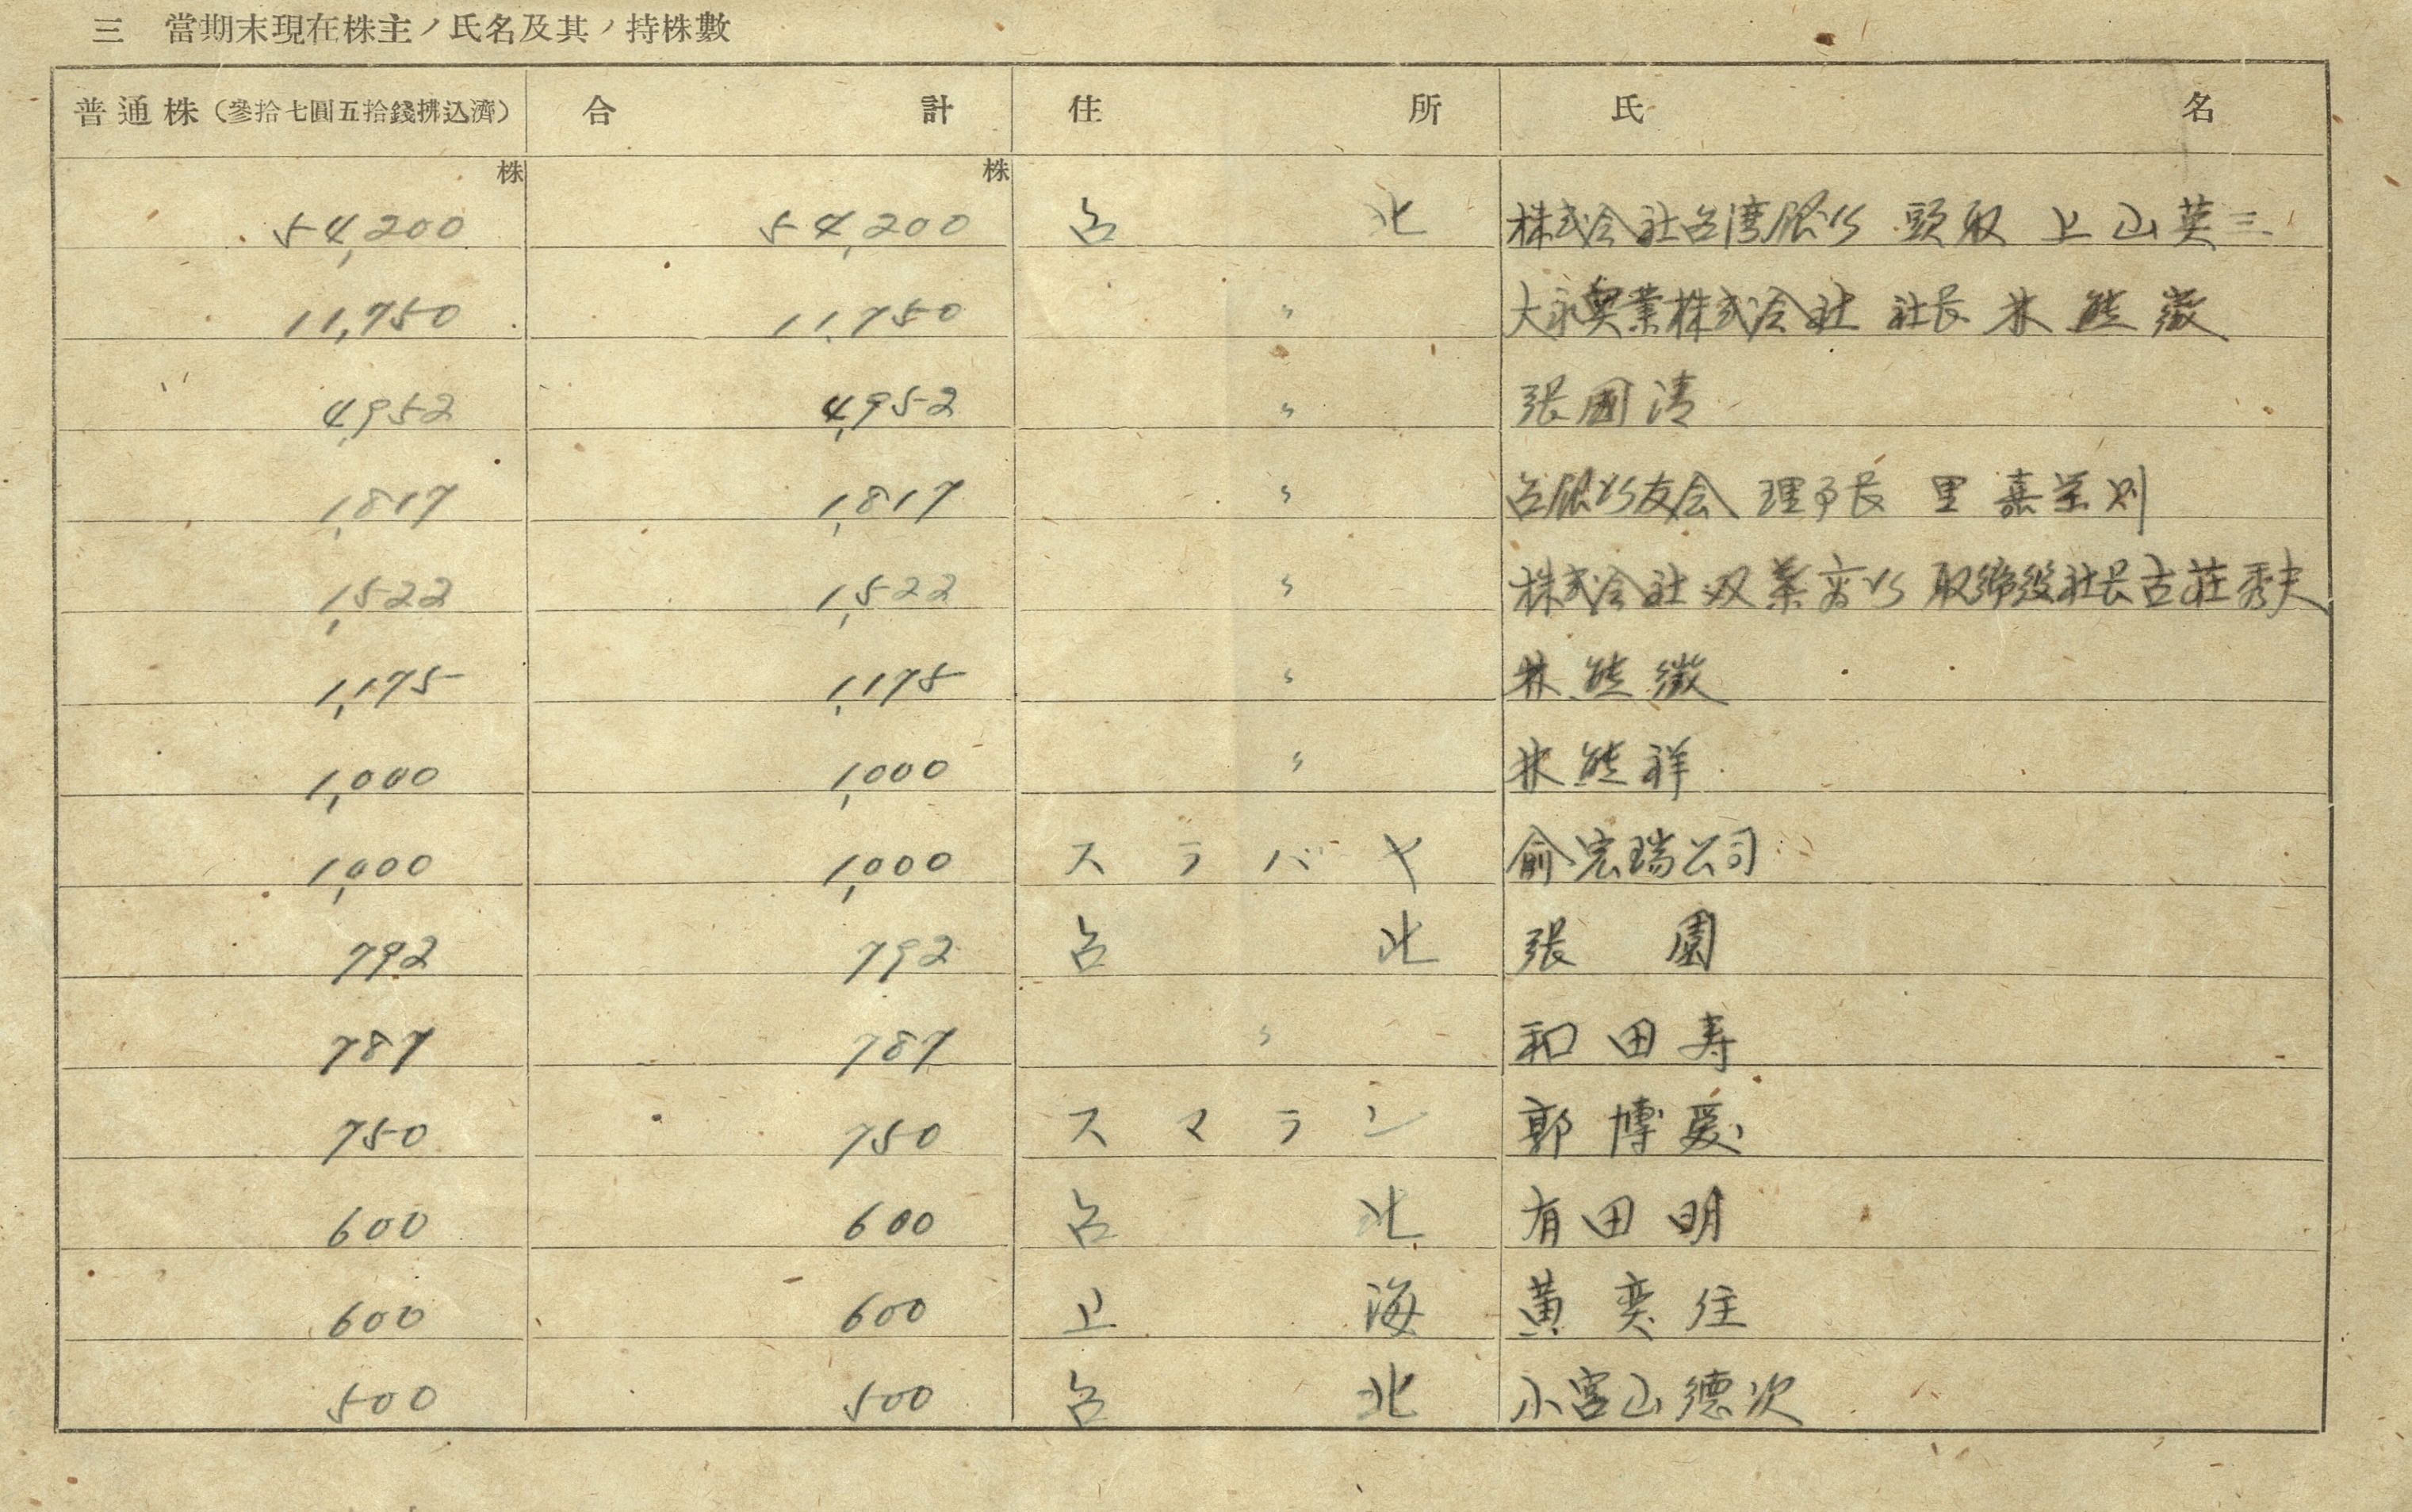 三 當期末現在株主ノ氏名及其ノ持株數
普通株(參拾七圓五拾錢拂込濟) 合計 住所 氏名
株 株
54,200 54,200 台北 株式会社台湾銀行 頭取 上山英三
11,750 11,750 〃 大永興業株式会社 社長 林熊徴
4,952 4,952 〃 張國清
1,817 1,817 〃 台銀行友会 理事長 里見榮則
1,522 1,522 〃 株式会社双葉商行 取締役社長古荘秀夫
1,175 1,175 〃 林熊徴
1,000 1,000 〃 林熊祥
1,000 1,000 スラバヤ 俞宏瑞公司
792 792 台北 張園
787 787 〃 和田寿
750 750 スマラン 郭博愛
600 600 台北 有田明
600 600 上海 黃奕住
500 500 台北 小宮山徳次